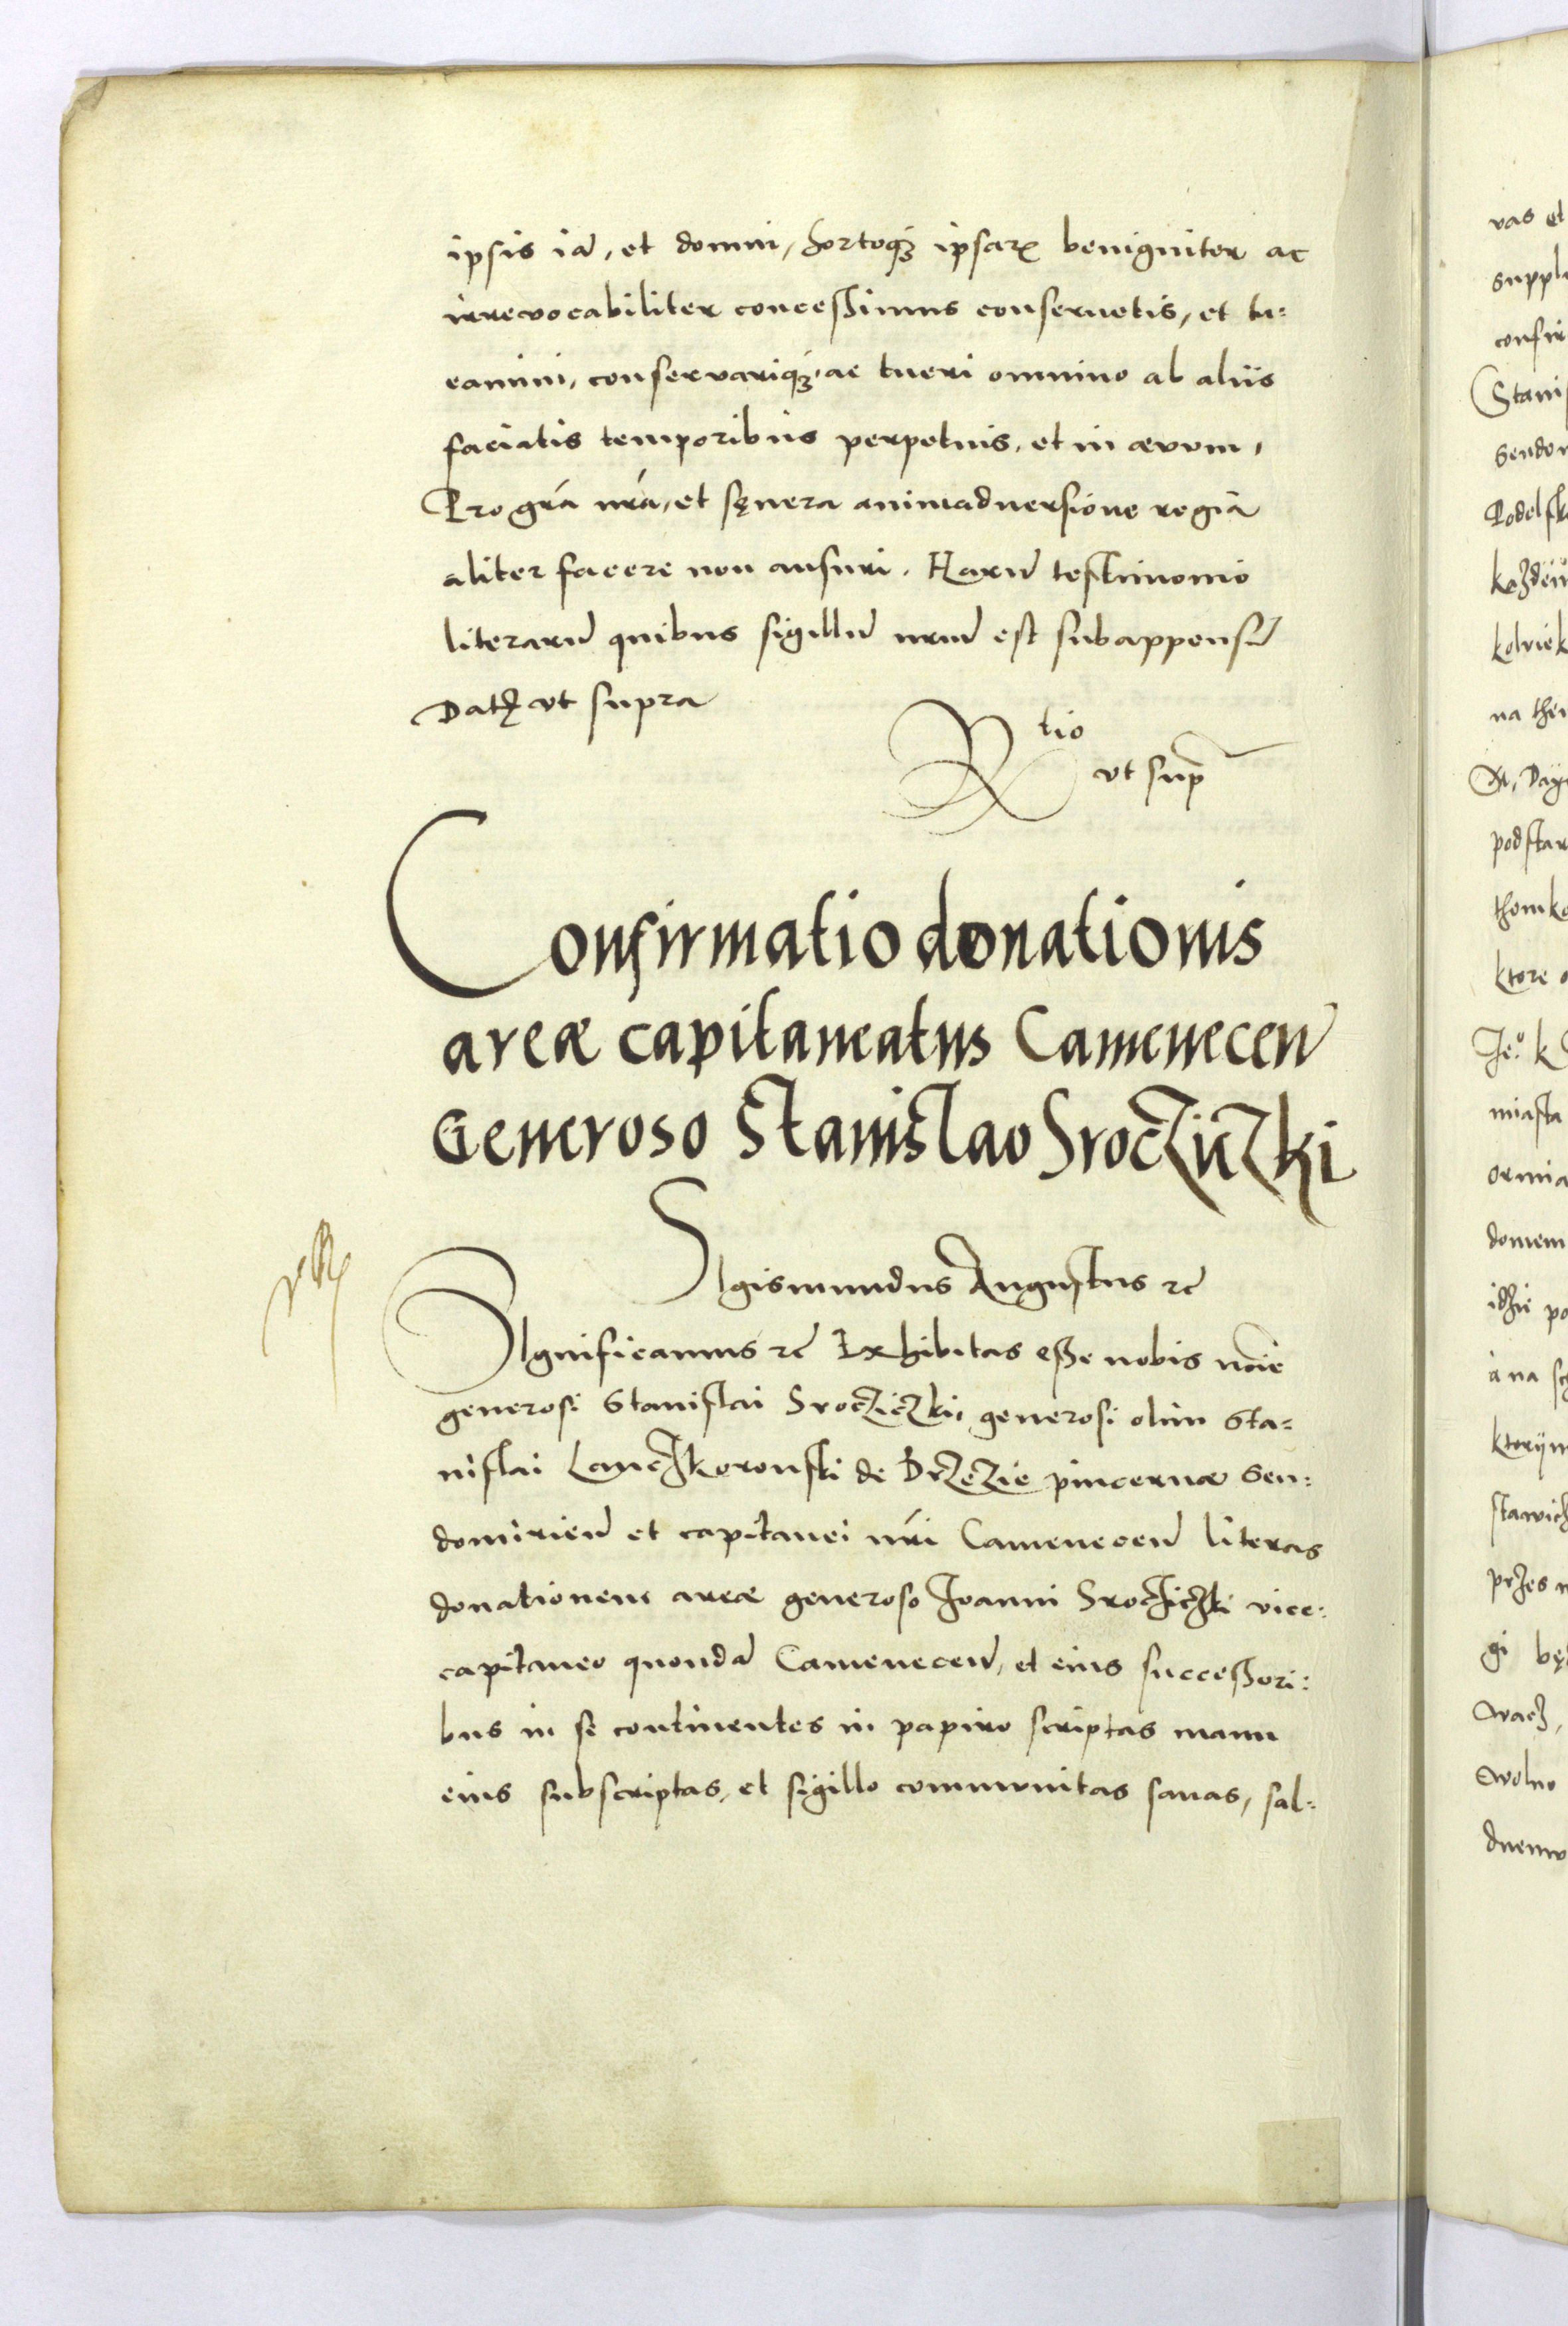 ipsis iã, et domui, hortoq3 ipsarꝝ benigniter ac
irrevocabiliter concessimus conseruetis, et tu:
eamini, conservariq3, ac tueri omnino ab aliis
faciatis temporibus perpetuis, et in ævum,
Pro grã nrã, et sęuera animaduersione regia
aliter facere non ausuri. Harũ testimonio
literarũ quibus sigillũ nrũ est subappensũ
Datȩ vt supra
Rtio
vt sup
Confirmatio donationis
areæ capitaneatus Camenecen̄
Generoso Stanislao Sroczitzki
SIgismundus Augustus ꝛc̃
SIgnificamus ꝛc̃ Exhibitas esse nobis noĩe
generosi Stanislai Srocziczki, generosi olim Sta=
nislai Lanczkoronski de Brzezie pincernæ Sen:
domirien̄ et capitanei nr̃i Camenecen̄ literas
donationem areæ generoso Joanni Srocziczki vice:
capitaneo quondã Camenecen̄, et eius successori:
bus in se continentes in papiro scriptas manu
eius subscriptas, et sigillo communitas sanas, sal:
vas et
suppli
confir
Stanis
Sendom
Podolsk
kolviek
podstar
thomko
ktore
Je:º k
miasta
ormia
domem
ktorÿm
przes
gi
wolno